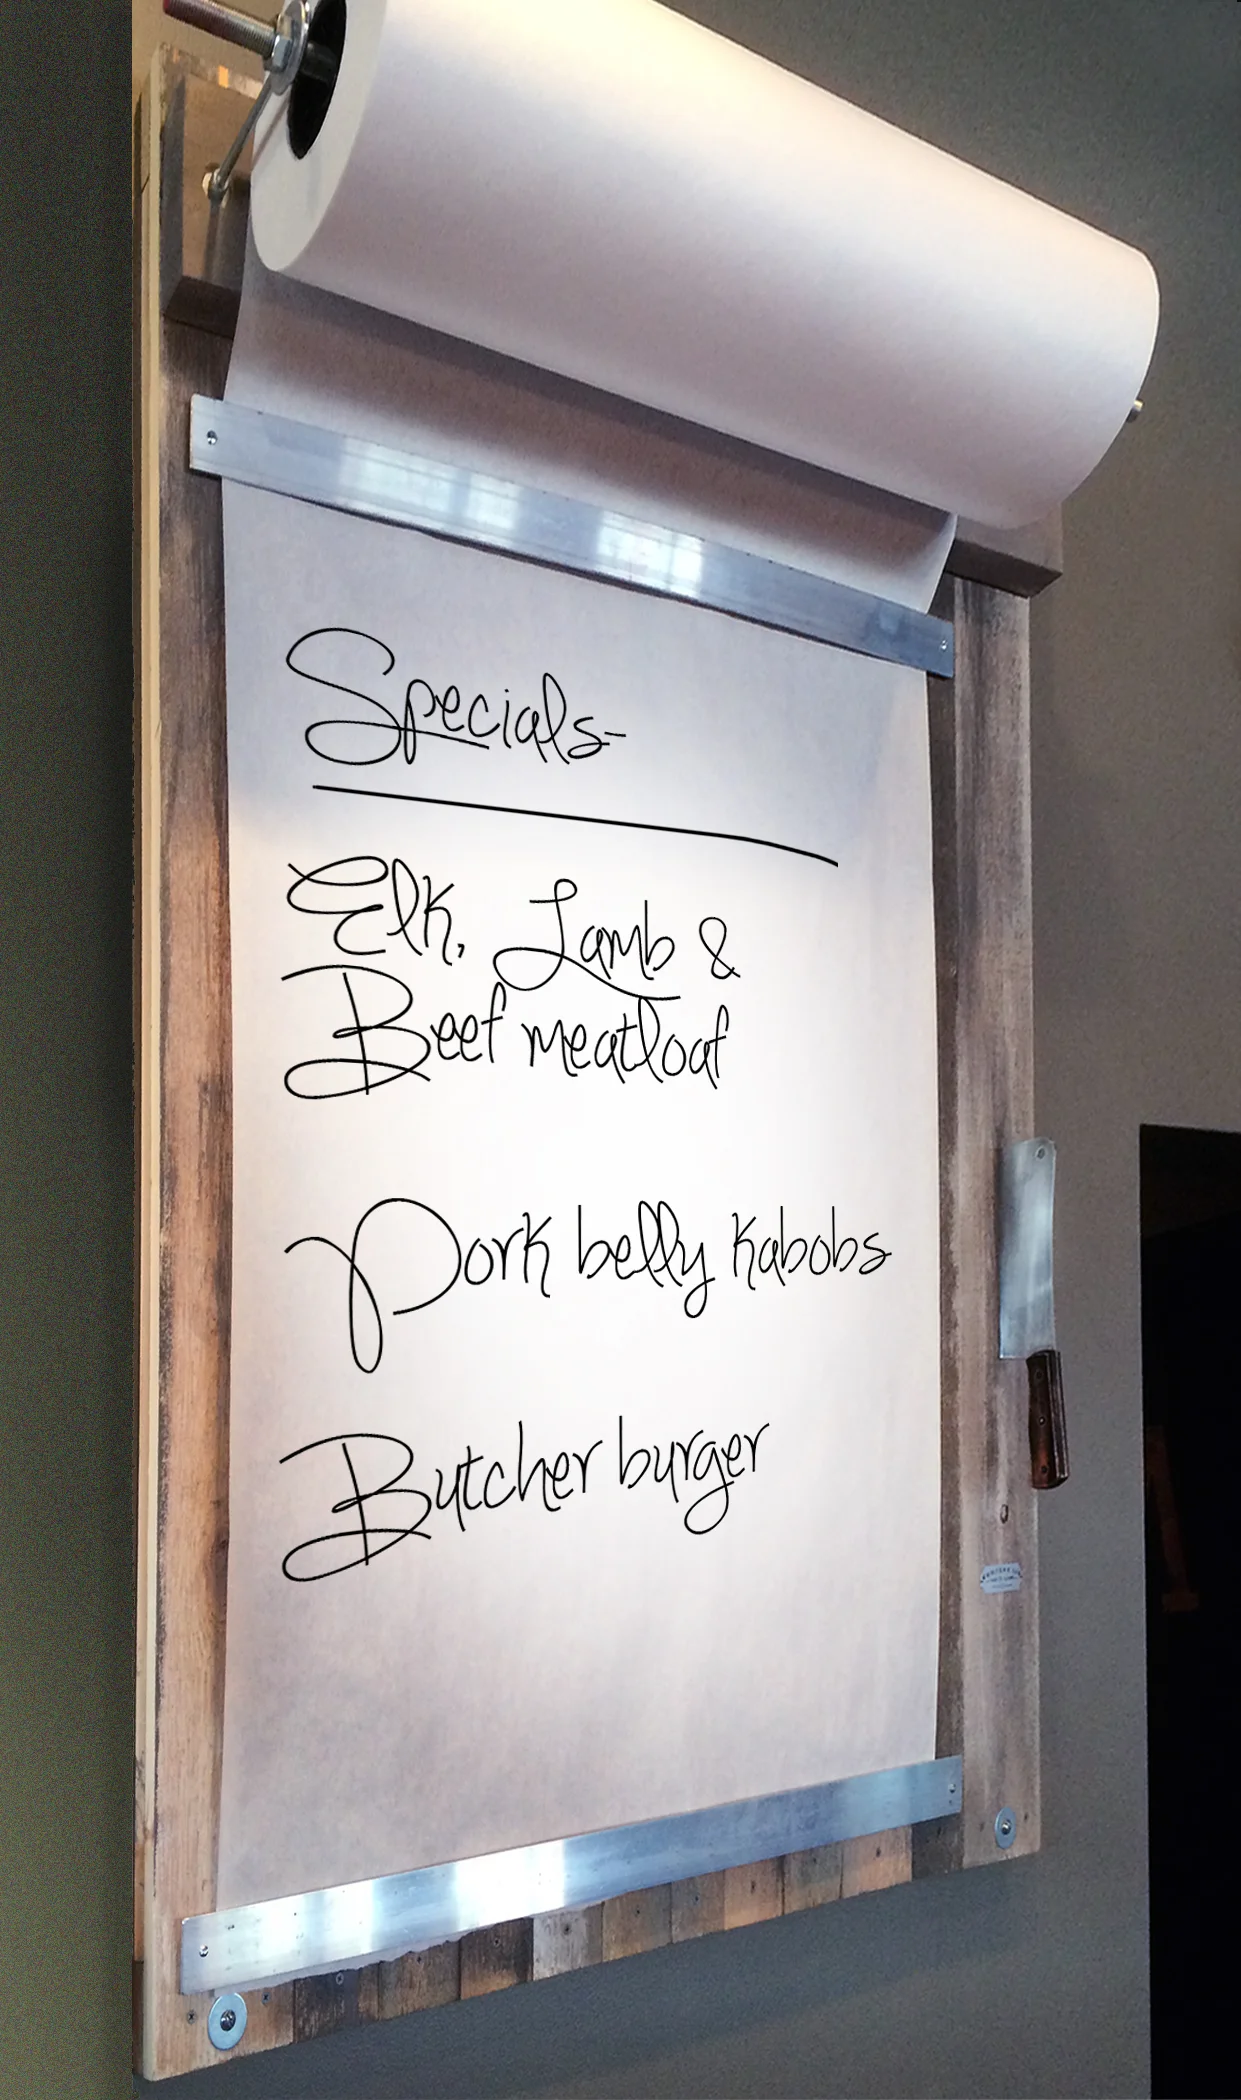 Specials-
Elk, Lamb &
Beef meatloaf
Pork belly kabobs
Butcher burger